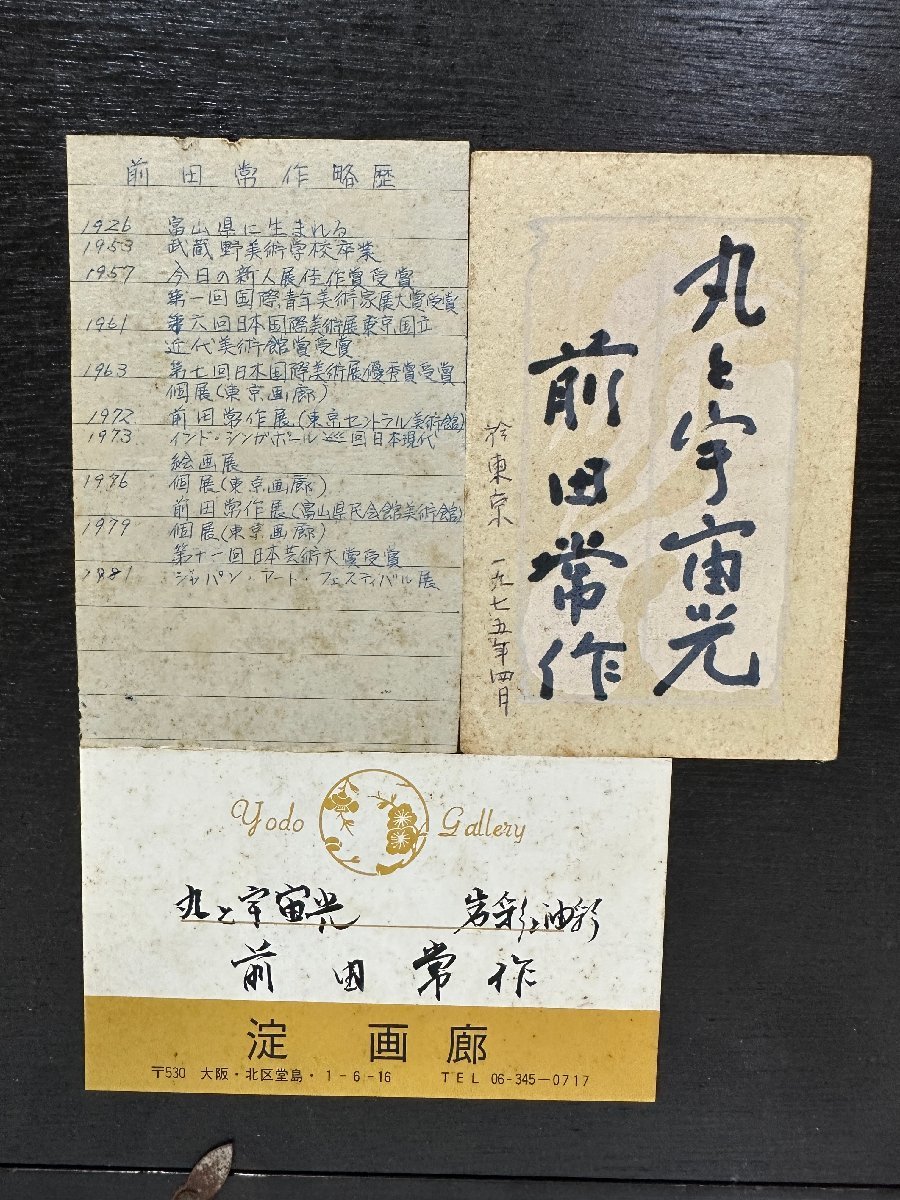 前田常作略歴
1926 富山県に生まれる
1953 武蔵野美術学校卒業
1957 今日の新人展佳作賞受賞
第一回国際青年美術家展大賞受賞
1961 第六回日本国際美術展東京国立
近代美術館賞受賞
1963 第七回日本国際美術展優秀賞受賞
個展(東京画廊)
1972 前田常作展(東京セントラル美術館)
1973 インド・シンガポール巡回日本現代
絵画展
1976 個展(東京画廊)
前田常作展(富山県民会館美術館)
1979 個展(東京画廊)
第十一回日本芸術大賞受賞
1981 ジャパン・アート・フェスティバル展
丸と宇宙光
前田常作
於東京 一九七五年四日
Yodo Gallery
丸と宇宙光 岩彩と油彩
前田常作
淀画廊
〒530 大阪・北区堂島・1-6-16 TEL 06-345-0717